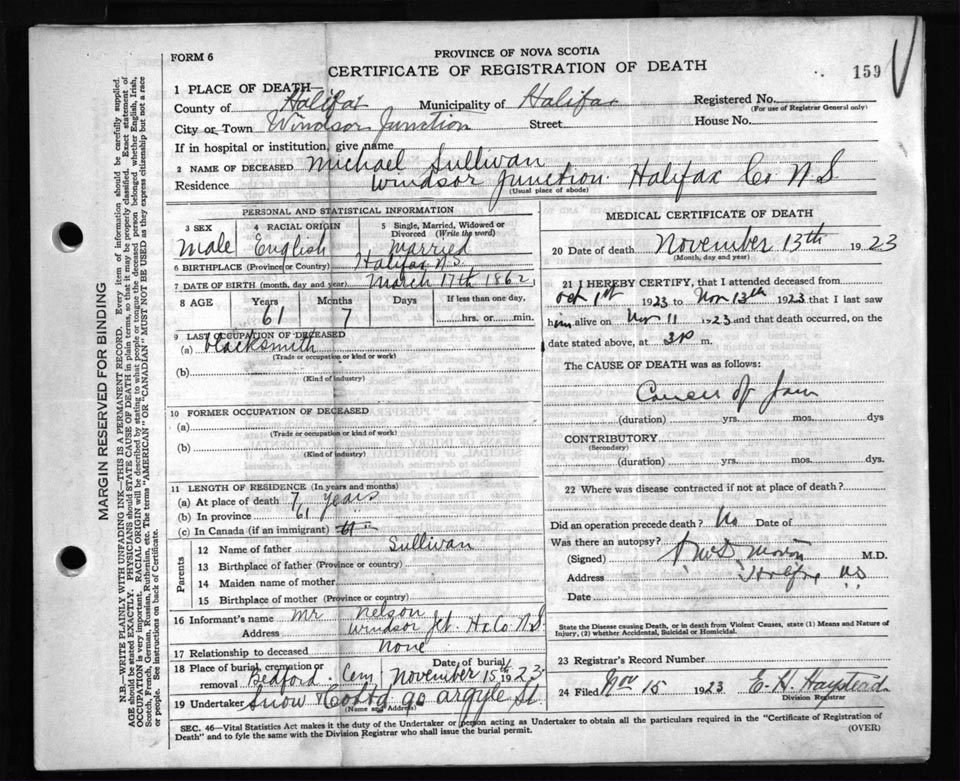 FORM 6
PROVINCE OF NOVA SCOTIA
CERTIFICATE OF REGISTRATION OF DEATH
159
1 PLACE OF DEATH
County of Halifax Municipality of Halifax Registered No.
(For use of Registrar General only)
City or Town Windsor Junction Street House No.
If in hospital or institution, give name
2 NAME OF DECEASED Michael Sullivan
Residence Windsor Junction Halifax Co N.S.
(Usual place of abode)
PERSONAL AND STATISTICAL INFORMATION
3 SEX 4 RACIAL ORIGIN 5 Single, Married, Widowed or Divorced (Write the word)
Male English Married
6 BIRTHPLACE (Province or Country) Halifax N.S.
7 DATE OF BIRTH (month, day and year) March 17th 1862
8 AGE Years Months Days If less than one day,
61 7 hrs. or min.
9 LAST OCCUPATION OF DECEASED
(a) blacksmith
(Trade or occupation or kind of work)
(b)
(Kind of industry)
10 FORMER OCCUPATION OF DECEASED
(a)
(Trade or occupation or kind of work)
(b)
(Kind of industry)
11 LENGTH OF RESIDENCE (In years and months)
(a) At place of death 7 years
(b) In province 61 "
(c) In Canada (if an immigrant)
Parents
12 Name of father Sullivan
13 Birthplace of father (Province or country)
14 Maiden name of mother
15 Birthplace of mother (Province or country)
16 Informant's name Mr Nelson
Address Windsor Jct. Hx Co N.S.
17 Relationship to deceased None
18 Place of burial, cremation or removal Bedford Cem Date of burial November 15th 1923
19 Undertaker Snow & Co Ltd 90 Argyle St
(Name and Address)
MEDICAL CERTIFICATE OF DEATH
20 Date of death November 13th 1923
(Month, day and year)
21 I HEREBY CERTIFY, that I attended deceased from
Oct 1st 1923 to Nov 13th 1923 that I last saw
him alive on Nov 11 1923 and that death occurred, on the
date stated above, at 3 P m.
The CAUSE OF DEATH was as follows:
Cancer of Jaw
(duration) yrs. mos. dys
CONTRIBUTORY
(Secondary)
(duration) yrs. mos. dys.
22 Where was disease contracted if not at place of death?
Did an operation precede death? No Date of
Was there an autopsy?
(Signed) Morton M.D.
Address Halifax N.S.
Date
State the Disease causing Death, or in death from Violent Causes, state (1) Means and Nature of Injury, (2) whether Accidental, Suicidal or Homicidal.
23 Registrar's Record Number
24 Filed Nov 15 1923 E. H.
Division Registrar
SEC. 46—Vital Statistics Act makes it the duty of the Undertaker or person acting as Undertaker to obtain all the particulars required in the "Certificate of Registration of
Death" and to fyle the same with the Division Registrar who shall issue the burial permit.
(OVER)
MARGIN RESERVED FOR BINDING
N.B.—WRITE PLAINLY WITH UNFADING INK—THIS IS A PERMANENT RECORD. Every item of information should be carefully supplied.
AGE should be stated EXACTLY. PHYSICIANS should STATE CAUSE OF DEATH in plain terms, so that it may be properly classified. Exact statement of
OCCUPATION is very important. RACIAL ORIGIN will be described by stating to what people or tongue the deceased person belonged whether English, Irish,
Scotch, French, German, Russian, Ruthenian, etc. The terms "AMERICAN" OR "CANADIAN" MUST NOT BE USED as they express citizenship but not a race
or people. See instructions on back of Certificate.